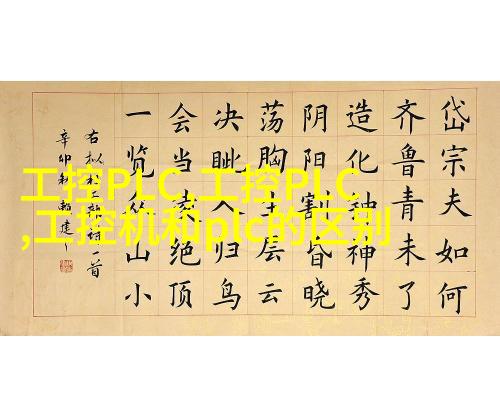 工控PLC,工控PLC
,工控机和plc的区别
岱宗夫如何
齐鲁青未了
造化钟神秀
阴阳割昏晓
荡胸生层云
决眦入归鸟
会当凌绝顶
一览众山小
右拟 一首
辛卯秋 建